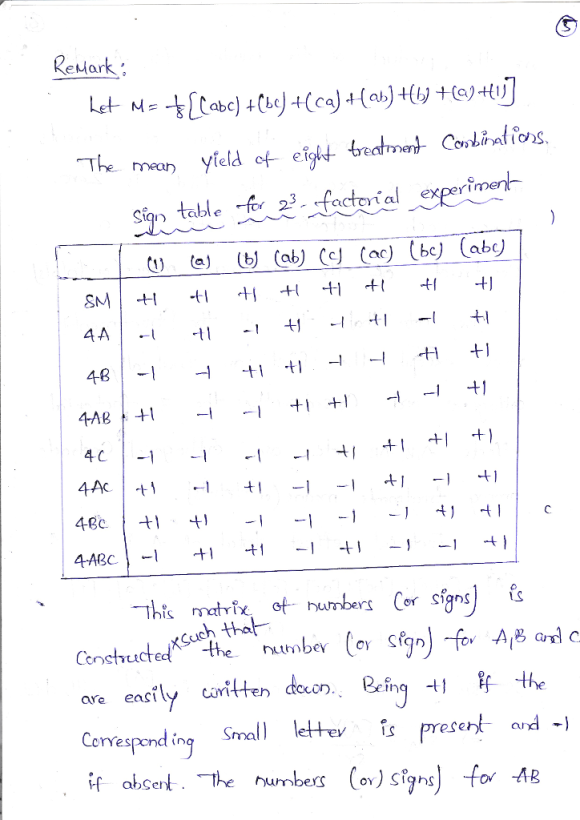 5
Remark:
Let M = 1/8 [(abc) + (bc) + (ca) + (ab) + (b) + (a) + (1)]
The mean yield of eight treatment Combinations.
Sign table for 2³- factorial experiment
(1) (a) (b) (ab) (c) (ac) (bc) (abc)
8M +1 +1 +1 +1 +1 +1 +1 +1
4A -1 +1 -1 +1 -1 +1 -1 +1
4B -1 -1 +1 +1 -1 -1 +1 +1
4AB +1 -1 -1 +1 +1 -1 -1 +1
4C -1 -1 -1 -1 +1 +1 +1 +1
4AC +1 -1 +1 -1 -1 +1 -1 +1
4BC +1 +1 -1 -1 -1 -1 +1 +1
4ABC -1 +1 +1 -1 +1 -1 -1 +1
This matrix of numbers (or signs) is
Constructed such that the number (or sign) for A, B and C
are easily written down. Being +1 if the
Corresponding Small letter is present and -1
if absent. The numbers (or) signs) for AB